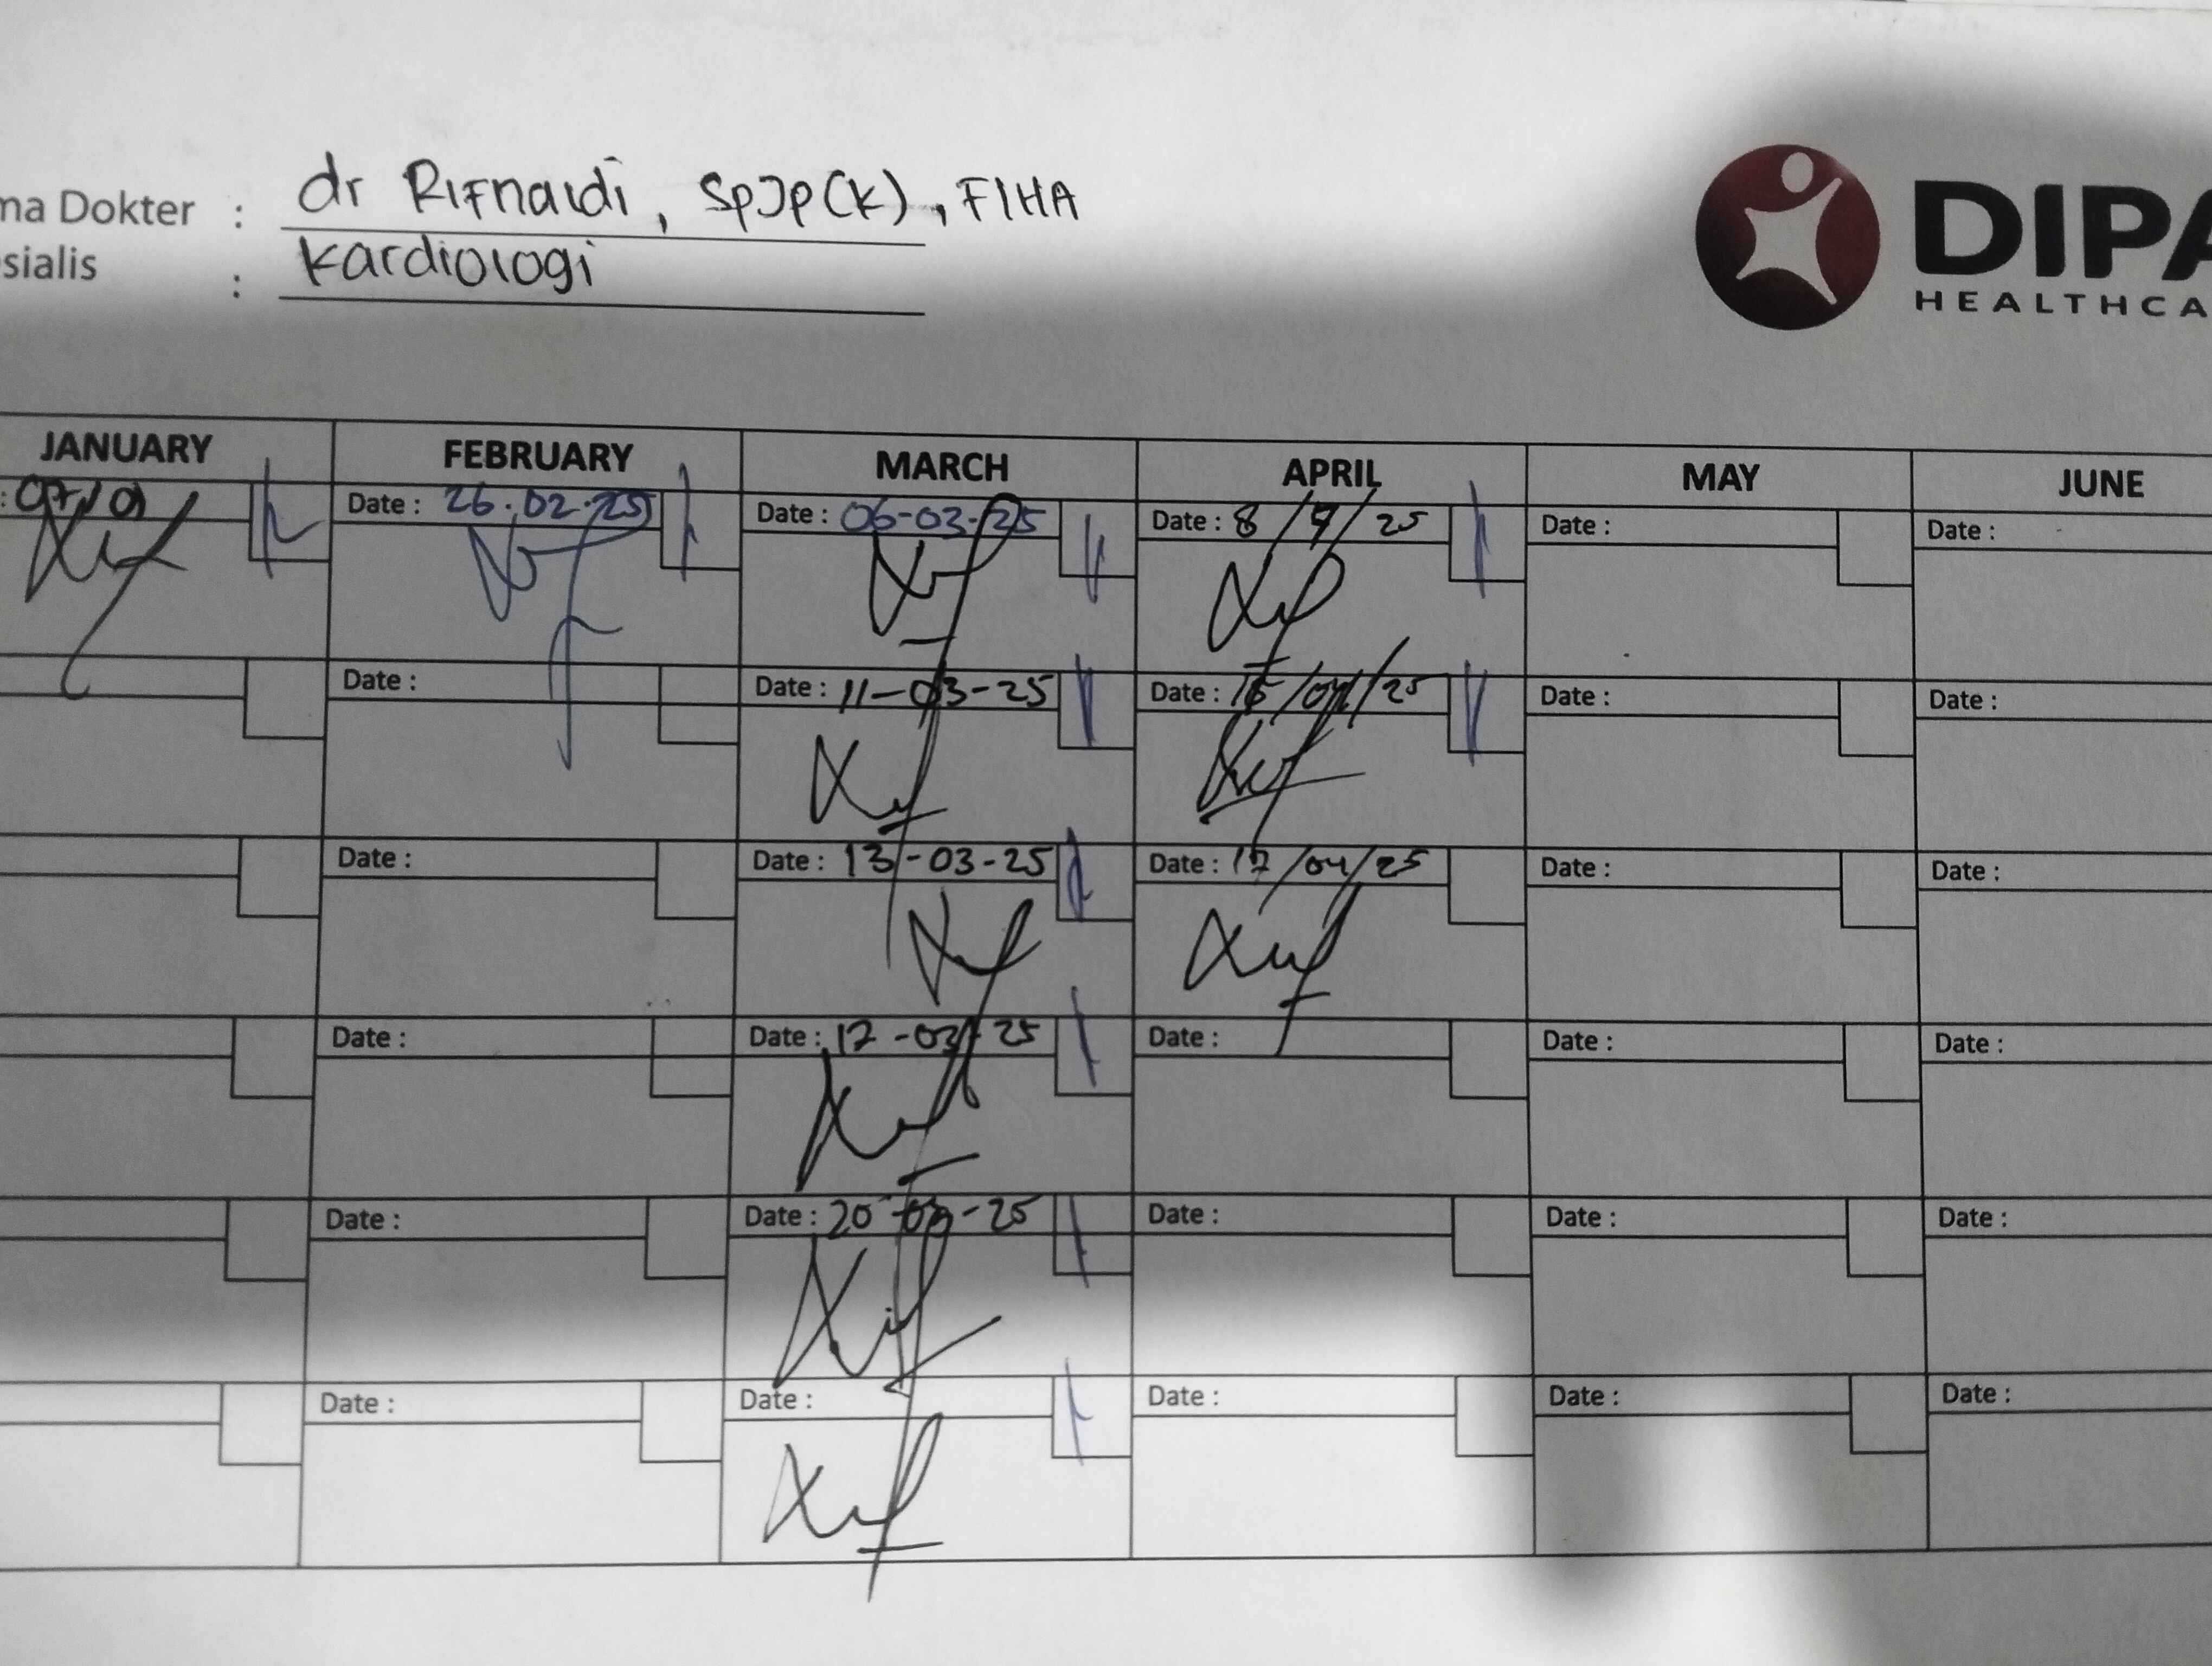 ma Dokter : dr Rifnaldi, SpJp(K), FIHA
sialis : Kardiologi
DIPA
HEALTHCA
JANUARY FEBRUARY MARCH APRIL MAY JUNE
: 07/01 Date : 26.02.25 Date : 06-03-25 Date : 8/4/25 Date : Date :
Date : Date : 11-03-25 Date : 15/04/25 Date : Date :
Date : Date : 13-03-25 Date : 17/04/25 Date : Date :
Date : Date : 17-03-25 Date : Date : Date :
Date : Date : 20-03-25 Date : Date : Date :
Date : Date : Date : Date : Date :